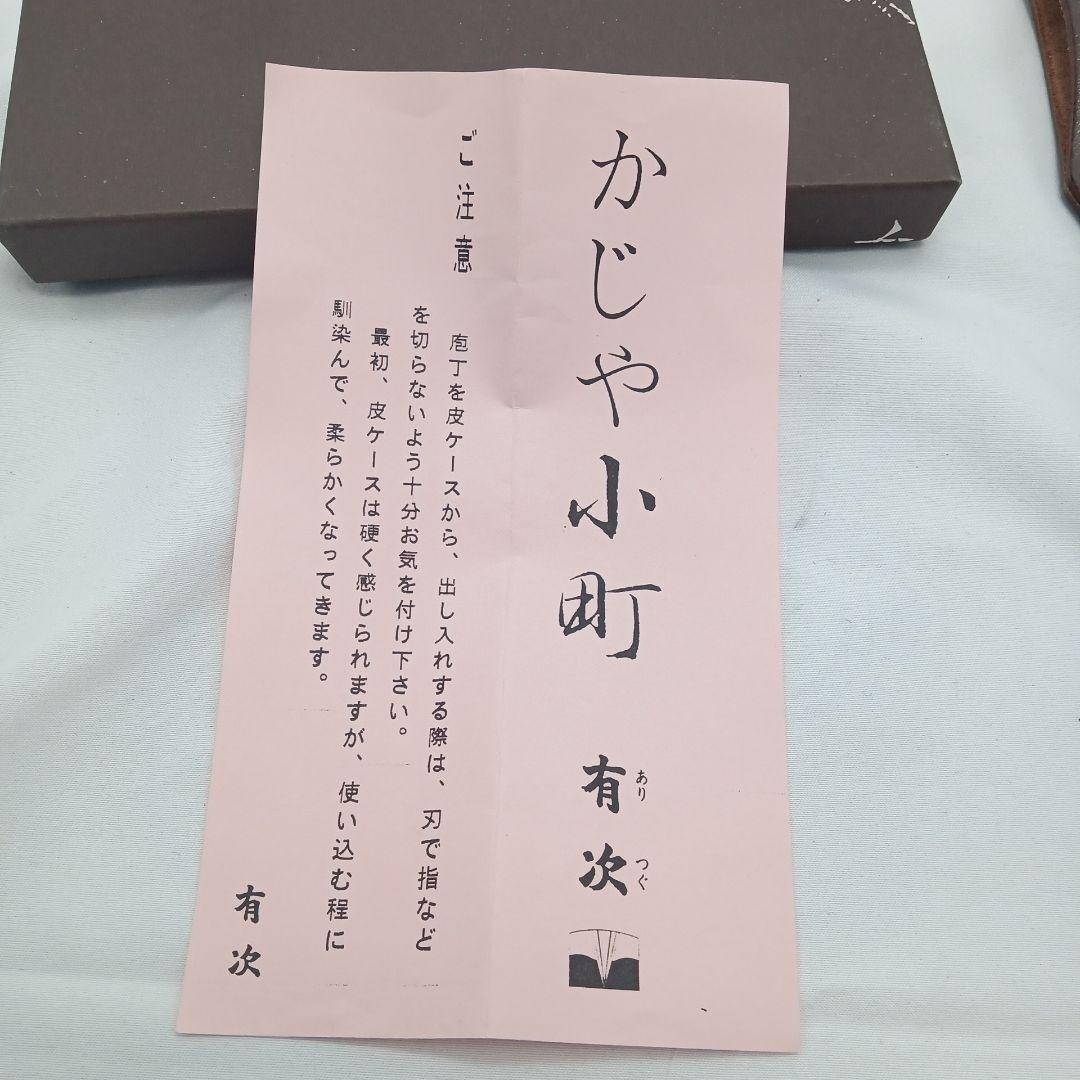 かじや小町
有次
あり
つぐ
ご注意
庖丁を皮ケースから、出し入れする際は、刃で指など
を切らないよう十分お気を付け下さい。
最初、皮ケースは硬く感じられますが、使い込む程に
馴染んで、柔らかくなってきます。
有次